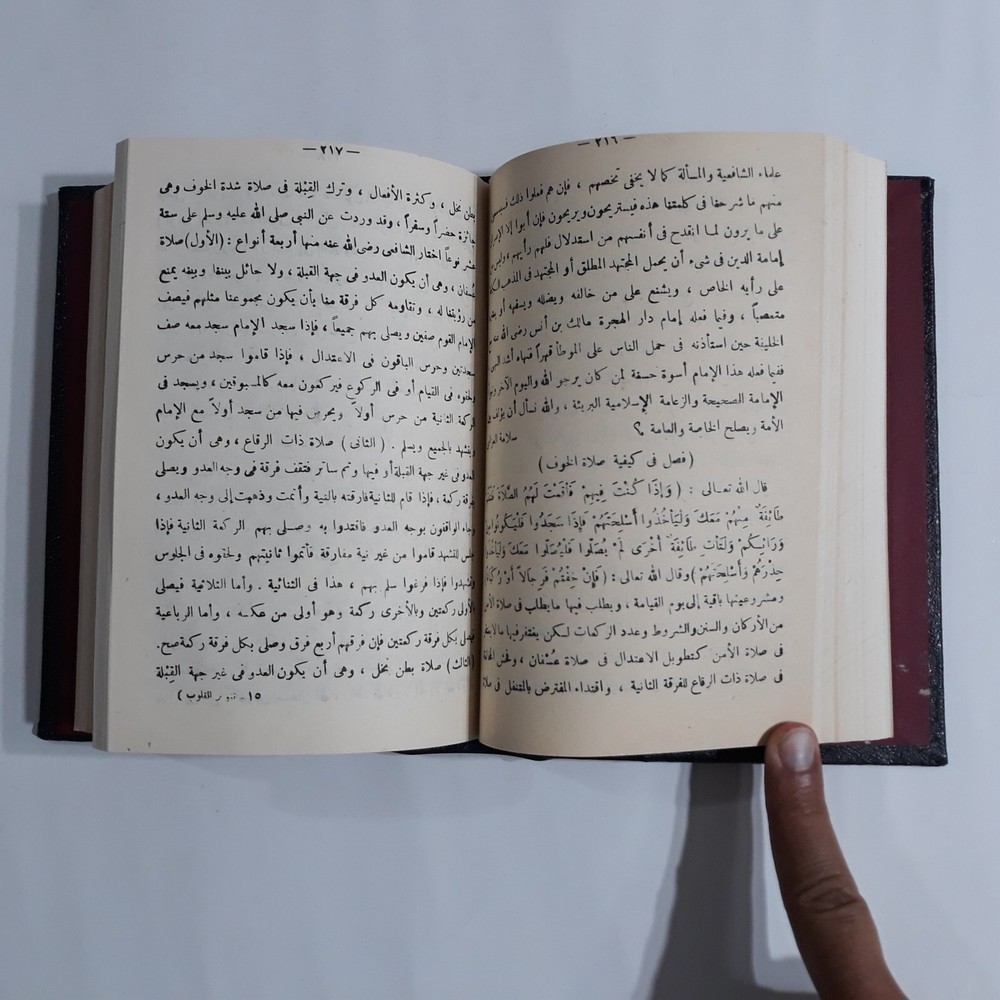 — ٢١٦ —
علماء الشافعية والمسألة كما لا يخفى تخصهم ، فإن هم فعلوا ذلك
منهم ما شرحنا فى كلمتنا هذه فيستريحون ويريحون فإن أبوا إلا
على ما يرون لمـا انقدح فى أنفسهم من استدلال فلهم رأيهم
إمامة الدين فى شىء أن يحمل المجتهد المطلق أو المجتهد فى المذهب
على رأيه الخاص ، ويشنع على من خالفه ويضلله ويسفهه أو
متعصباً ، وفيما فعله إمام دار الهجرة مالك بن أنس رضى الله عنه
الخليفة حين استأذنه فى حمل الناس على الموطأ قهراً فنهاه أشد
ففيما فعله هذا الإمام أسوة حسنة لمن كان يرجو الله واليوم الآخر
الإمامة الصحيحة والزعامة الإسلامية البريئة ، والله نسأل أن يؤلف
الأمة ويصلح الخاصة والعامة ؟ سلامة
( فصل فى كيفية صلاة الخوف )
قال الله تعـالى : ( وَإِذَا كُنْتَ فِيهِمْ فَأَقَمْتَ لَهُمُ الصَّلَاةَ
طَائِفَةٌ مِنْهُمْ مَعَكَ وَلْيَأْخُذُوا أَسْلِحَتَهُمْ فَإِذَا سَجَدُوا فَلْيَكُونُوا مِنْ
وَرَائِكُمْ وَلْتَأْتِ طَائِفَةٌ أُخْرَى لَمْ يُصَلُّوا فَلْيُصَلُّوا مَعَكَ وَلْيَأْخُذُوا
حِذْرَهُمْ وَأَسْلِحَتَهُمْ ) وقال الله تعالى : ( فَإِنْ خِفْتُمْ فَرِجَالاً أَوْ رُكْبَانًا
ومشروعيتها باقية إلى يوم القيامة ، ويطلب فيها ما يطلب فى صلاة الأمن
من الأركان والسنن والشروط وعدد الركعات لـكن يغتفر فيها ما لا
فى صلاة الأمن كتطويل الاعتدال فى صلاة عُسْفان ،
فى صلاة ذات الرقاع للفرقة الثانية ، واقتداء المفترض بالمتنفل فى صلاة
— ٢١٧ —
بطن نخل ، وكثرة الأفعال ، وترك القِبْلة فى صلاة شدة الخوف وهى
جائزة حضراً وسفراً ، وقد وردت عن النبى صلى الله عليه وسلم على ستة
عشر نوعاً اختار الشافعى رضى الله عنه منها أربعة أنواع : (الأول) صلاة
عُسفان ، وهى أن يكون العدو فى جهة القبلة ، ولا حائل بيننا وبينه يمنع
من رؤيتنا له ، وتقاومه كل فرقة منا بأن يكون مجموعنا مثلهم فيصف
الإمام القوم صفين ويصلى بهم جميعاً ، فإذا سجد الإمام سجد معه صف
سجدتين وحرس الباقون فى الاعتدال ، فإذا قاموا سجد من حرس
ولحقوه فى القيام أو فى الركوع فيركعون معه كالمسبوقين ، ويسجد فى
الركعة الثانية من حرس أولاً ويحرس فيها من سجد أولاً مع الإمام
ويتشهد بالجميع ويسلم . ( الثانى ) صلاة ذات الرقاع ، وهى أن يكون
العدو فى غير جهة القبلة أو فيها وثم ساتر فتقف فرقة فى وجه العدو ويصلى
بفرقة ركعة ، فإذا قام للثانية فارقته بالنية وأتمت وذهبت إلى وجه العدو ،
وجاء الواقفون بوجه العدو فاقتدوا به وصلى بهم الركعة الثانية فإذا
جلس للتشهد قاموا من غير نية مفارقة فأتموا ثانيتهم ولحقوه فى الجلوس
وتشهدوا فإذا فرغوا سلم بهم ، هذا فى الثنائية . وأما الثلاثية فيصلى
بالأولى ركعتين وبالأخرى ركعة وهو أولى من عكسه ، وأما الرباعية
فيصلى بكل فرقة ركعتين فإن فرقهم أربع فرق وصلى بكل فرقة ركعة صح .
( الثالث ) صلاة بطن نخل ، وهى أن يكون العدو فى غير جهة القِبْلة
١٥ – تنوير القلوب )